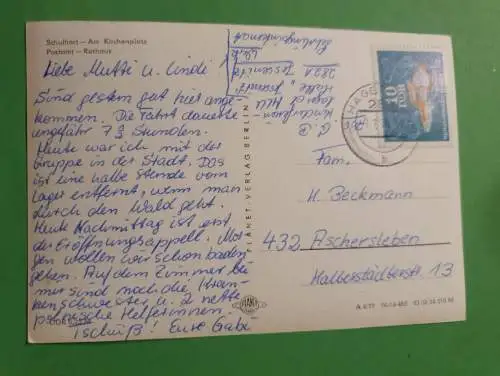 Schulhort – Am Kirchenplatz
Postamt – Rathaus
Liebe Mutti u. Linde!
Sind gestern gut hier ange-
kommen. Die Fahrt dauerte
ungefähr 7½ Stunden.
Heute war ich mit der
Gruppe in der Stadt. Das
ist eine halbe Stunde vom
Lager entfernt, wenn man
durch den Wald geht.
Heute Nachmittag ist erst
der Eröffnungsappell. Mor-
gen wollen wir schon baden
gehen. Auf dem Zimmer bei
mir sind noch die Kran-
kenschwester u. 2 nette
polnische Helferinnen.
Tschüß! Eure Gabi
PLANET-VERLAG BERLIN
G. B.
Kinderferien
lager d.
2821
HAGE
10
DDR
Fam.
H. Beckmann
432 Aschersleben
Halberstädterstr. 13